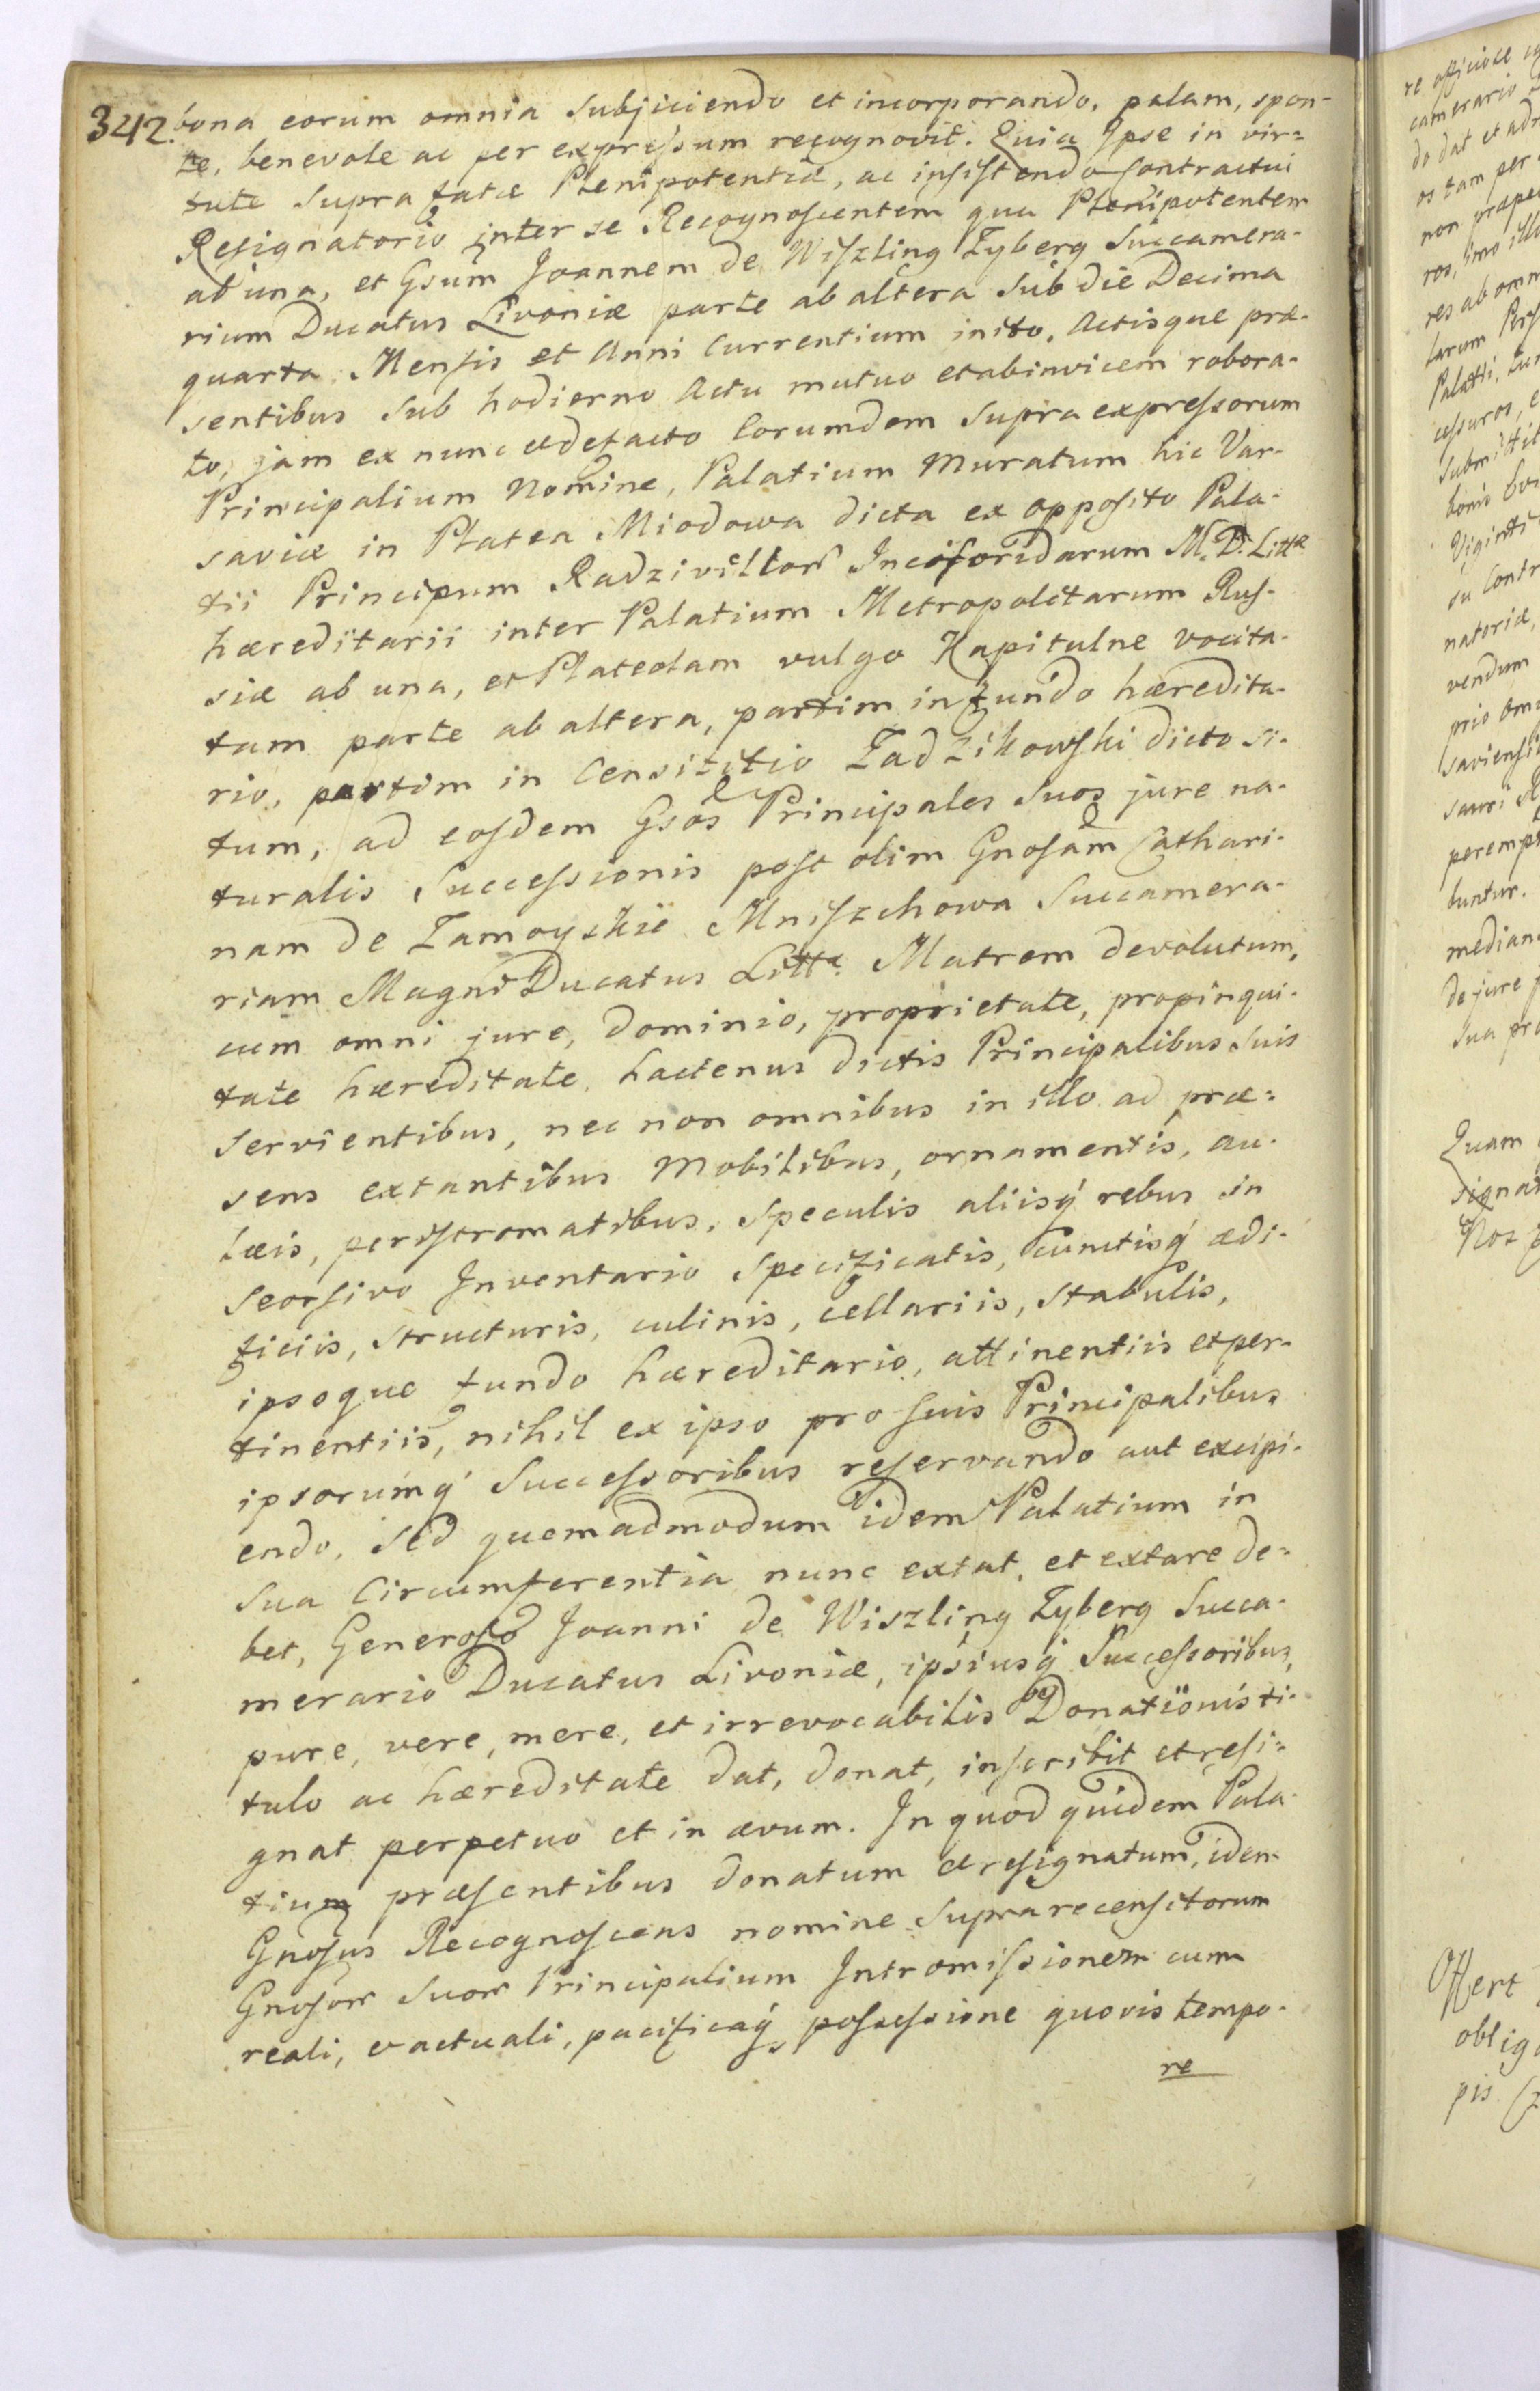 342. bona eorum omnia subjiciendo et incorporando, palam, spon-
te, benevole ac per expressum recognovit. Quia Ipse in vir=
tute supra fatæ Plenipotentiæ, ac insistendo Contractui
Resignatorio inter se Recognoscentem qua Plenipotentem
ab una, et Gsum Joannem de Wiszling Zyberg Succamera-
rium Ducatus Livoniæ parte ab altera sub die Decima
quarta Mensis et Anni Currentium inito, Actisque præ-
sentibus sub hodierno Actu mutuo et abinvicem robora-
to, jam ex nunc et defacto Eorumdem supra expressorum
Principalium Nomine, Palatium Muratum hic Var-
saviæ in Platea Miodowa dicta ex opposito Pala-
tii Principum Radziviłłor M. D. Littæ
hæreditarii inter Palatium Metropolitarum Rus-
siæ ab una, et Plateolam vulgo Kapitulne vocita-
tam parte ab altera, partim in fundo hæredita-
rio, partim in Censititio Zadzikowski dicto si-
tum, ad eosdem Gsos Principales suos jure na-
turalis Successionis post olim Gnosam Cathari-
nam de Zamoyskie Mniszchowa Succamera-
riam Magni Ducatus Littæ Matrem devolutum,
cum omni jure, dominio, proprietate, propinqui-
tate hæreditate, hactenus dictis Principalibus suis
servientibus, nec non omnibus in illo ad præ=
sens extantibus Mobilibus, ornamentis, au-
læis, peristromatibus, speculis aliisq́ rebus in
seorsivo Inventario specificatis, cunctisq́ ædi-
ficiis, structuris, culinis, cellariis, stabulis,
ipsoque fundo hæreditario, attinentiis et per-
tinentiis, nihil ex ipso pro suis Principalibus
ipsorumq́ Successoribus reservando aut excipi-
endo, sed quemadmodum idem Palatium in
sua Circumferentia nunc extat, et extare de=
bet, Generoso Joanni de Wiszling Zyberg Succa-
merario Ducatus Livoniæ, ipsiusq́ Successoribus,
pure, vere, mere, et irrevocabilis Donationis ti-
tulo ac hæreditate dat, donat, inscribit et resi=
gnat perpetuo et in ævum. In quod quidem Pala-
tium præsentibus donatum et resignatum, idem
Gnosus Recognoscens nomine supra recensitorum
Gnosor suor Principalium Intromissionem cum
reali, et actuali, pacificaq́ possessione quovis tempo-
re
re officiose
camerario
do dat et ad
os tam per
non
ros, imo
res ab omn
larum
Palatii,
cessuros,
submittit
Viginti
Contr
natoriæ,
vendum
prio om
saviensi
perempt
buntur.
median
de jure
sua pr
Quam
signa
Nos
Offert
oblig
pis